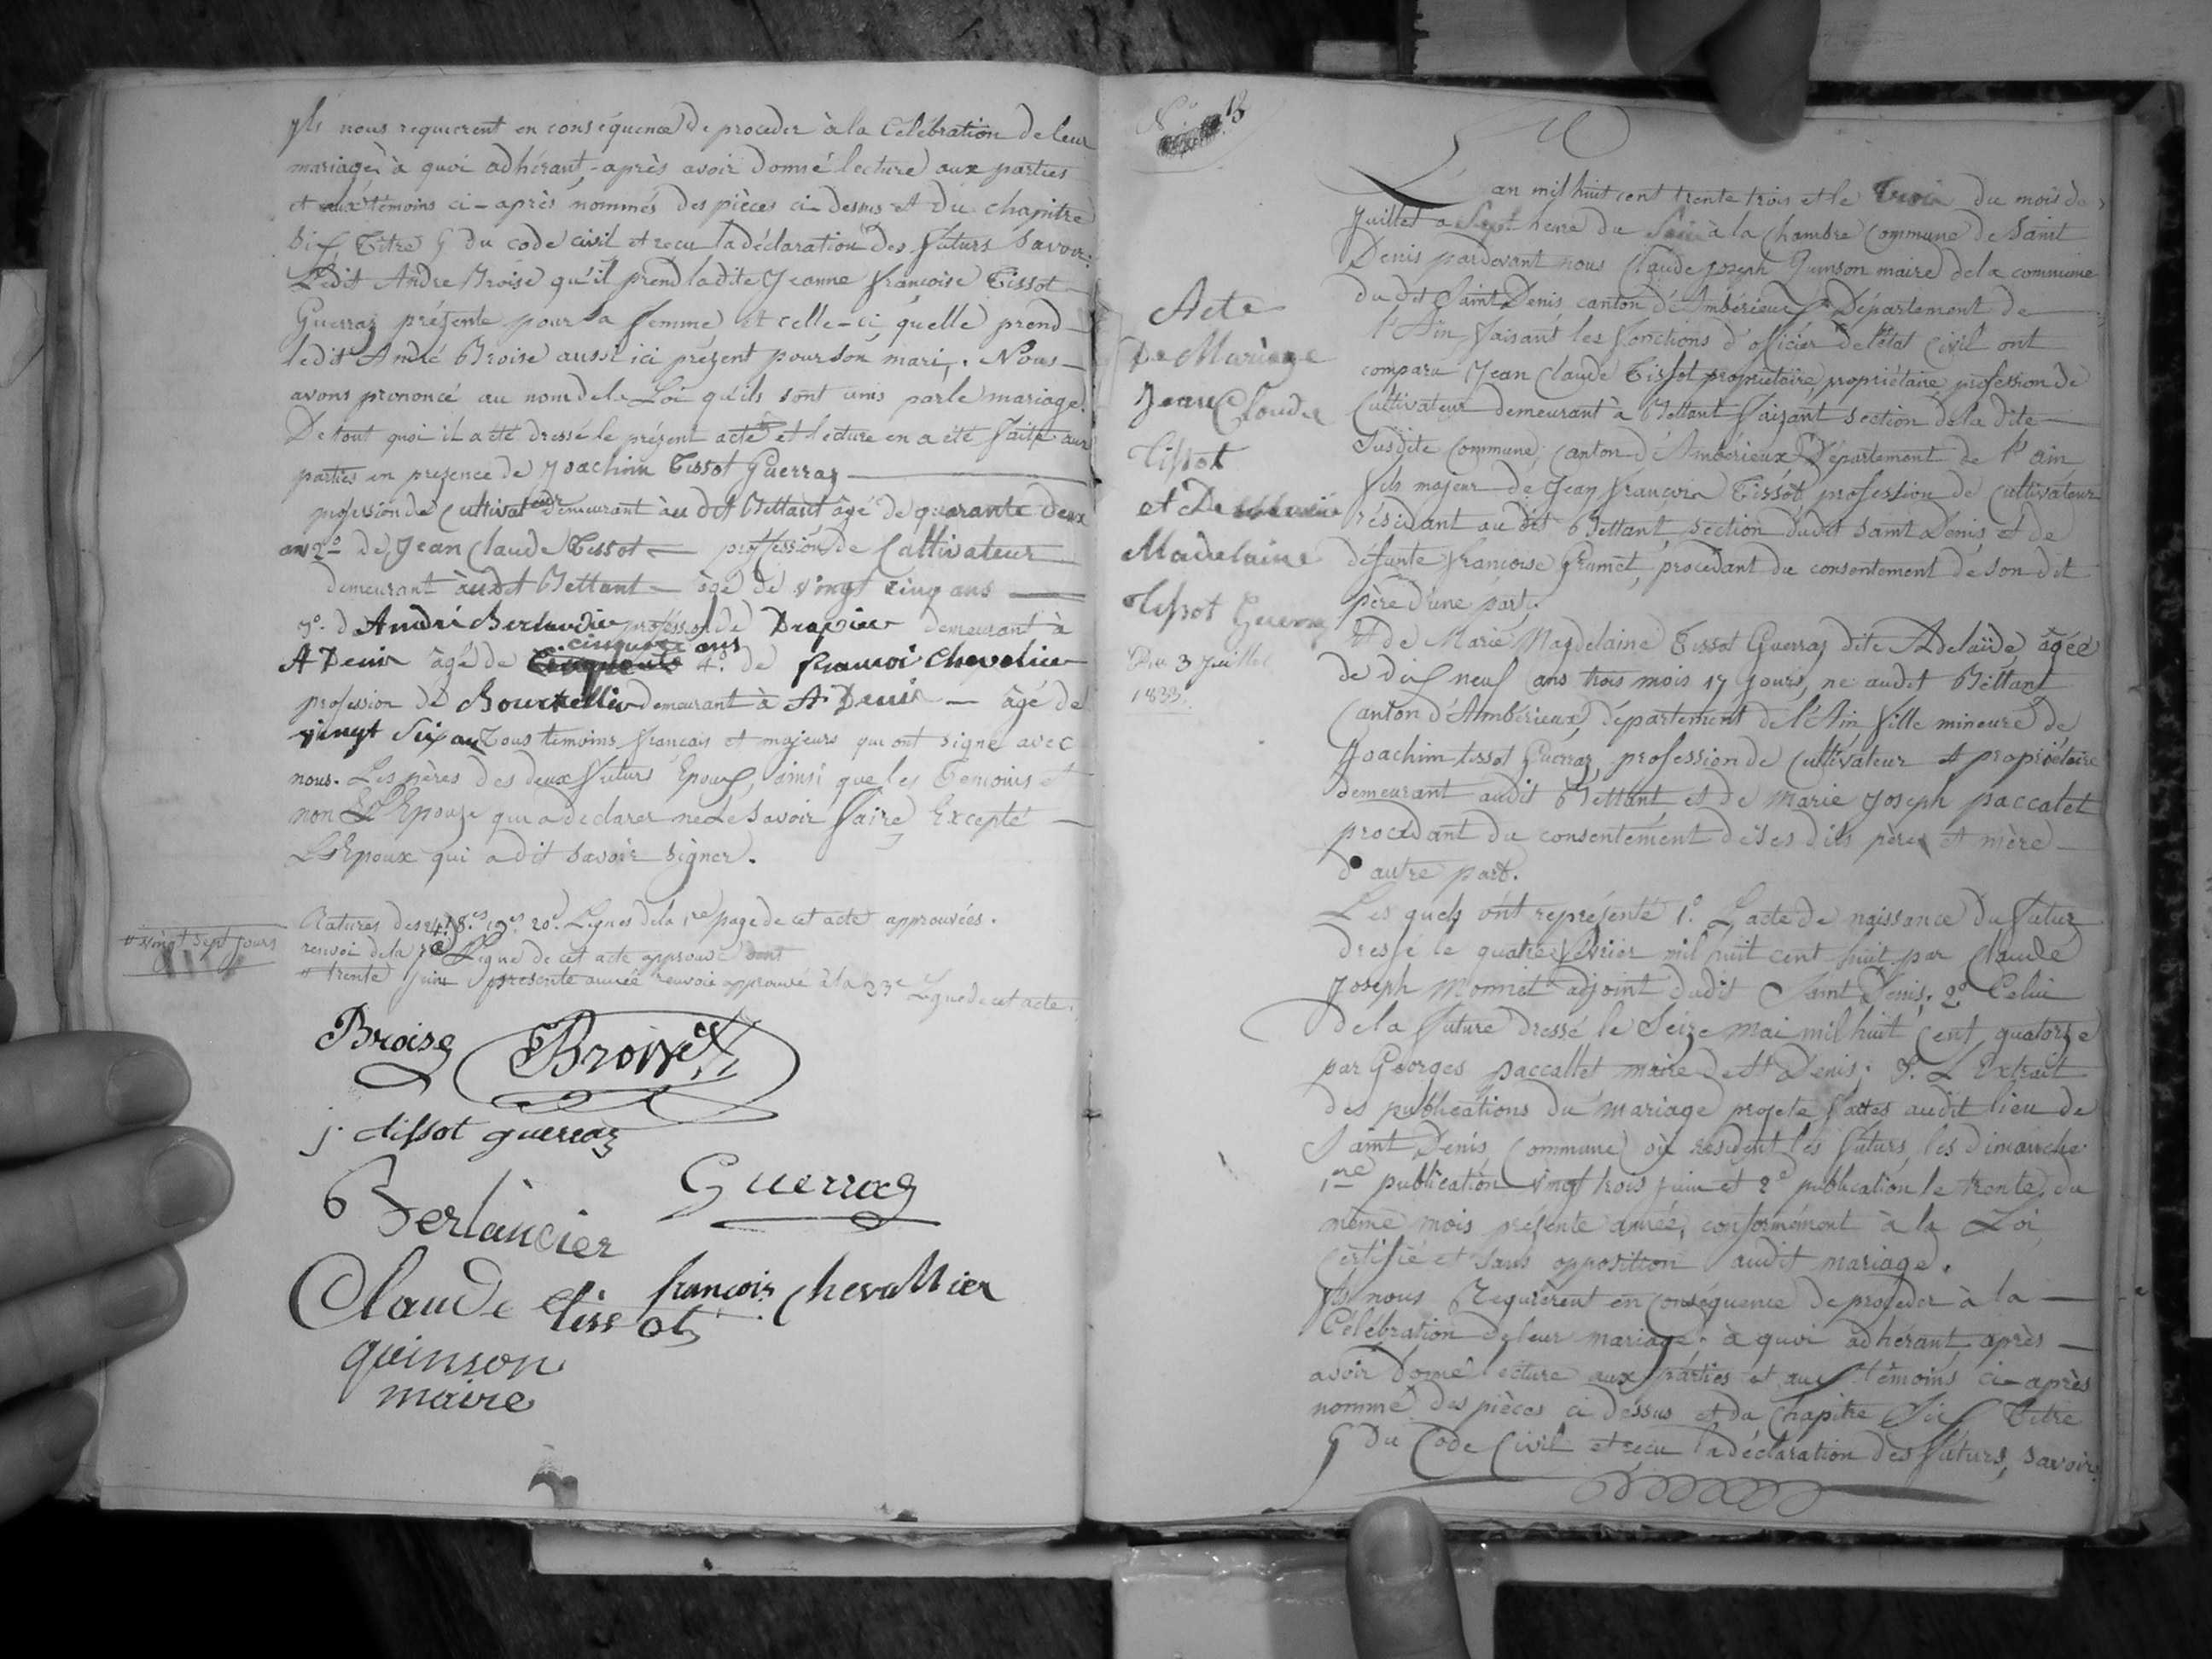 yls nous requierent en conséquence de proceder à la Célébration de leur
mariage, à quoi adhérant, après avoir donné lecture aux parties
et aux témoins ci-après nommés des pièces ci-dessus et du chapitre
Six Titre 5 du code civil et recu la déclaration des futurs Savoir:
Ledit André Broise qu'il prend ladite Jeanne françoise Tissot
Guerraz présente pour sa femme et celle-ci quelle prend
ledit André Broise aussi ici présent pour son mari,. Nous
avons prononcé au nom de la Loi qu'ils sont unis par le mariage.
De tout quoi il a été dressé le présent acte et lecture en a été faite aux
parties en presence de Joachim Tissot Guerraz
profession de Cultivateur demeurant au dit Bettant âgé de quarante deux
ans 2° de Jean Claude Tissot profession de Caltivateur
demeurant audit Bettant âgé de vingt cinq ans
3° d'André Berlandier profession de Drapier demeurant à
cinquante ans
St Denis âgé de 4° de francoi Chevalier
profession de Bourrellier demeurant à St Denis âgé de
vingt Six ans Tous temoins français et majeurs qui ont signé avec
nous. Les pères des deux futurs Epoux, ainsi que les Témoins et
non L'Epouze qui a declarer ne le savoir faire Excepté
L'Epoux qui a dit savoir signer.
Ratures des 18es 19es 20e Lignes de la 1re page de cet acte approuvées.
# vingt sept jours
renvoi de la 7e Ligne de cet acte approuvé dont
# trente juin présente année renvoie approuvé à la 23e Ligne de cet acte.
Broise Broise
j. tissot guerraz
Guerraz
Berlancier
françois chevallier
Claude tissot
quinson
maire
N° 13
Acte
De Mariage
Jean Claude
Tissot
et De
Madelaine
Tissot Guerraz
Du 3 Juillet
1833.
L'an mil huit cent trente trois et le trois du mois de
Juillet a Sept heure du Soir à la Chambre Commune de Saint
Denis pardevant nous Claude Joseph Quinson maire de la commune
du dit Saint Denis canton d'Ambérieux Département de
l'Ain faisant les fonctions d'oficier de l'état Civil ont
comparu Jean Claude Tissot propriétaire, propriétaire profession de
Cultivateur demeurant à Bettant faizant section de la dite
Susdite Commune, Canton d'Ambérieux Département de l'ain
fils majeur de Jean françois Tissot profession de Cultivateur
résidant au dit Bettant, section dudit Saint Denis, et de
défunte françoise Gramet, procédant du consentement de son dit
père d'une part.
Et de Marie Magdelaine Tissot Guerraz dite Adelaïde âgée
de dix neuf ans trois mois 17 jours, né audit Bettant
Canton d'Ambérieux, Département de l'Ain fille mineure de
Joachim tissot Guerraz, profession de Cultivateur et propriétaire
demeurant audit Bettant et de marie Joseph paccalet
procédant du consentement de ses dits père et mère
d'autre part.
Les quels ont représenté 1° L'acte de naissance du futur
dressé le quatre février mil huit cent huit par Claude
Joseph Monnet adjoint dudit Saint Denis; 2° Celui
de la future dressé le Seize mai mil huit Cent quatorze
par Georges paccallet maire de St Denis; 3° L'Extrait
des publications du mariage projeté faites audit lieu de
Saint Denis Commune où resident les futurs, les dimanche
1re publication vingt trois juin et 2e publication le trente, du
même mois présente année, conformément à la Loi
certifié et sans opposition audit mariage.
Yls nous Requierent en conséquence de proceder à la
Célébration de leur mariage à quoi adhérant après
avoir donné lecture aux parties et aux témoins ci-après
nommé des pièces ci dessus et du Chapitre Six Titre
5 du Code Civil et recu la déclaration des futurs, savoir: